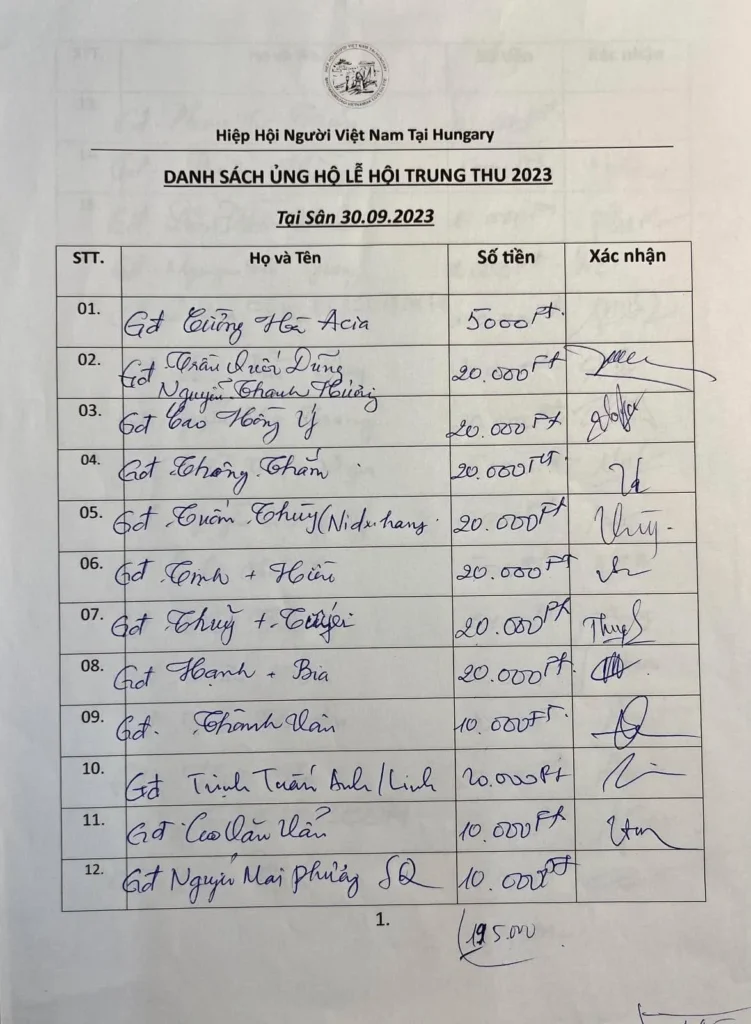 Hiệp Hội Người Việt Nam Tại Hungary
DANH SÁCH ỦNG HỘ LỄ HỘI TRUNG THU 2023
Tại Sân 30.09.2023
STT. Họ và Tên Số tiền Xác nhận
01. Gđ Cường Hà Acia 5000 Ft.
02. Gđ Trần Quốc Dũng 20.000 Ft
Nguyễn Thanh Hương
03. Gđ Cao Hồng Ý 20.000 Ft
04. Gđ Thông Thắm 20.000 Ft.
05. Gđ Tuấn Thùy 20.000 Ft Thùy.
06. Gđ + Hiền 20.000 Ft
07. Gđ Thuỷ + 20.000 Ft
08. Gđ Hạnh + Bia 20.000 Ft.
09. Gđ. Thành Vân 10.000 Ft.
10. Gđ Trịnh Tuấn Anh/Linh 20.000 Ft
11. Gđ Cao Văn Vẩn 10.000 Ft
12. Gđ Nguyễn Mai Phương SQ 10.000 Ft
1.
195.000